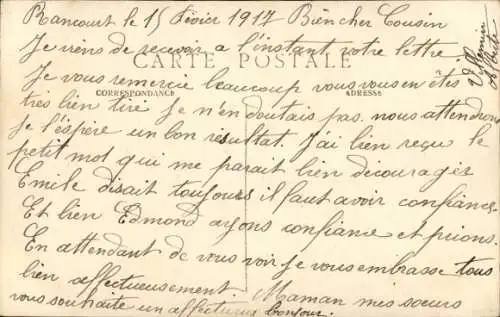 Rancourt le 15 Février 1917 Bien cher Cousin
Je viens de recevoir à l'instant votre lettre
CARTE POSTALE
Je vous remercie beaucoup vous vous en êtes
CORRESPONDANCE ADRESSE
très bien tiré Je n'en doutais pas. nous attendrons
je l'éspère un bon résultat. J'ai bien reçu le
petit mot qui me parait bien découragés
Emile disait toujours il faut avoir confiance
Et bien Edmond ayons confiance et prions.
En attendant de vous voir je vous embrasse tous
bien affectueusement. Maman mes soeurs
vous souhaite un affectueux bonjour.